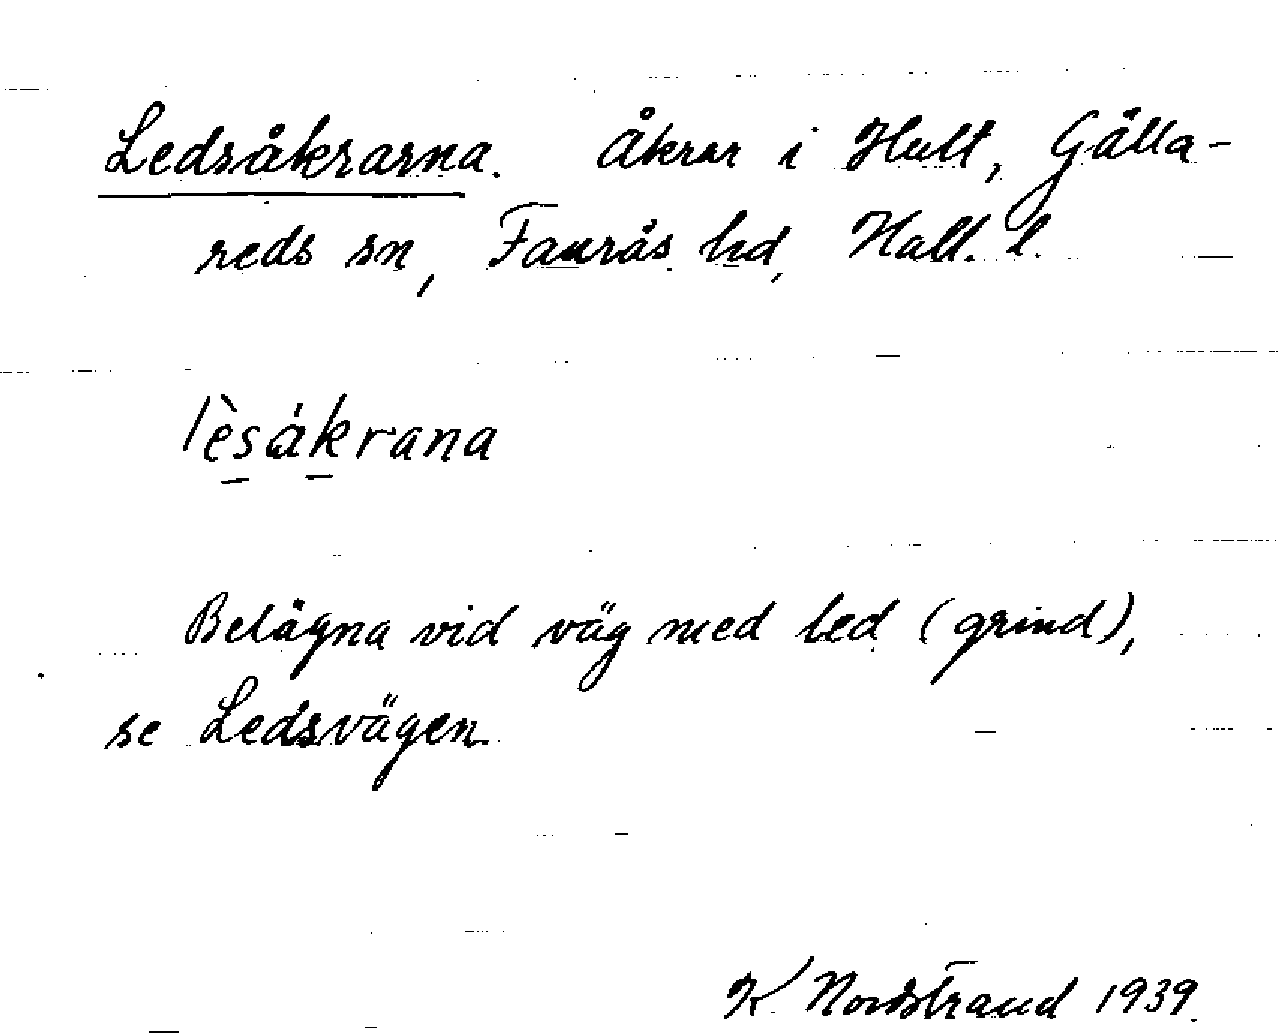 Ledsåkrarna. Åkrar i Hult, Gälla-
reds sn, Faurås hd, Hall. l.
lèsåkrana
Belägna vid väg med led (grind),
se Ledsvägen.
K Nordstrand 1939.